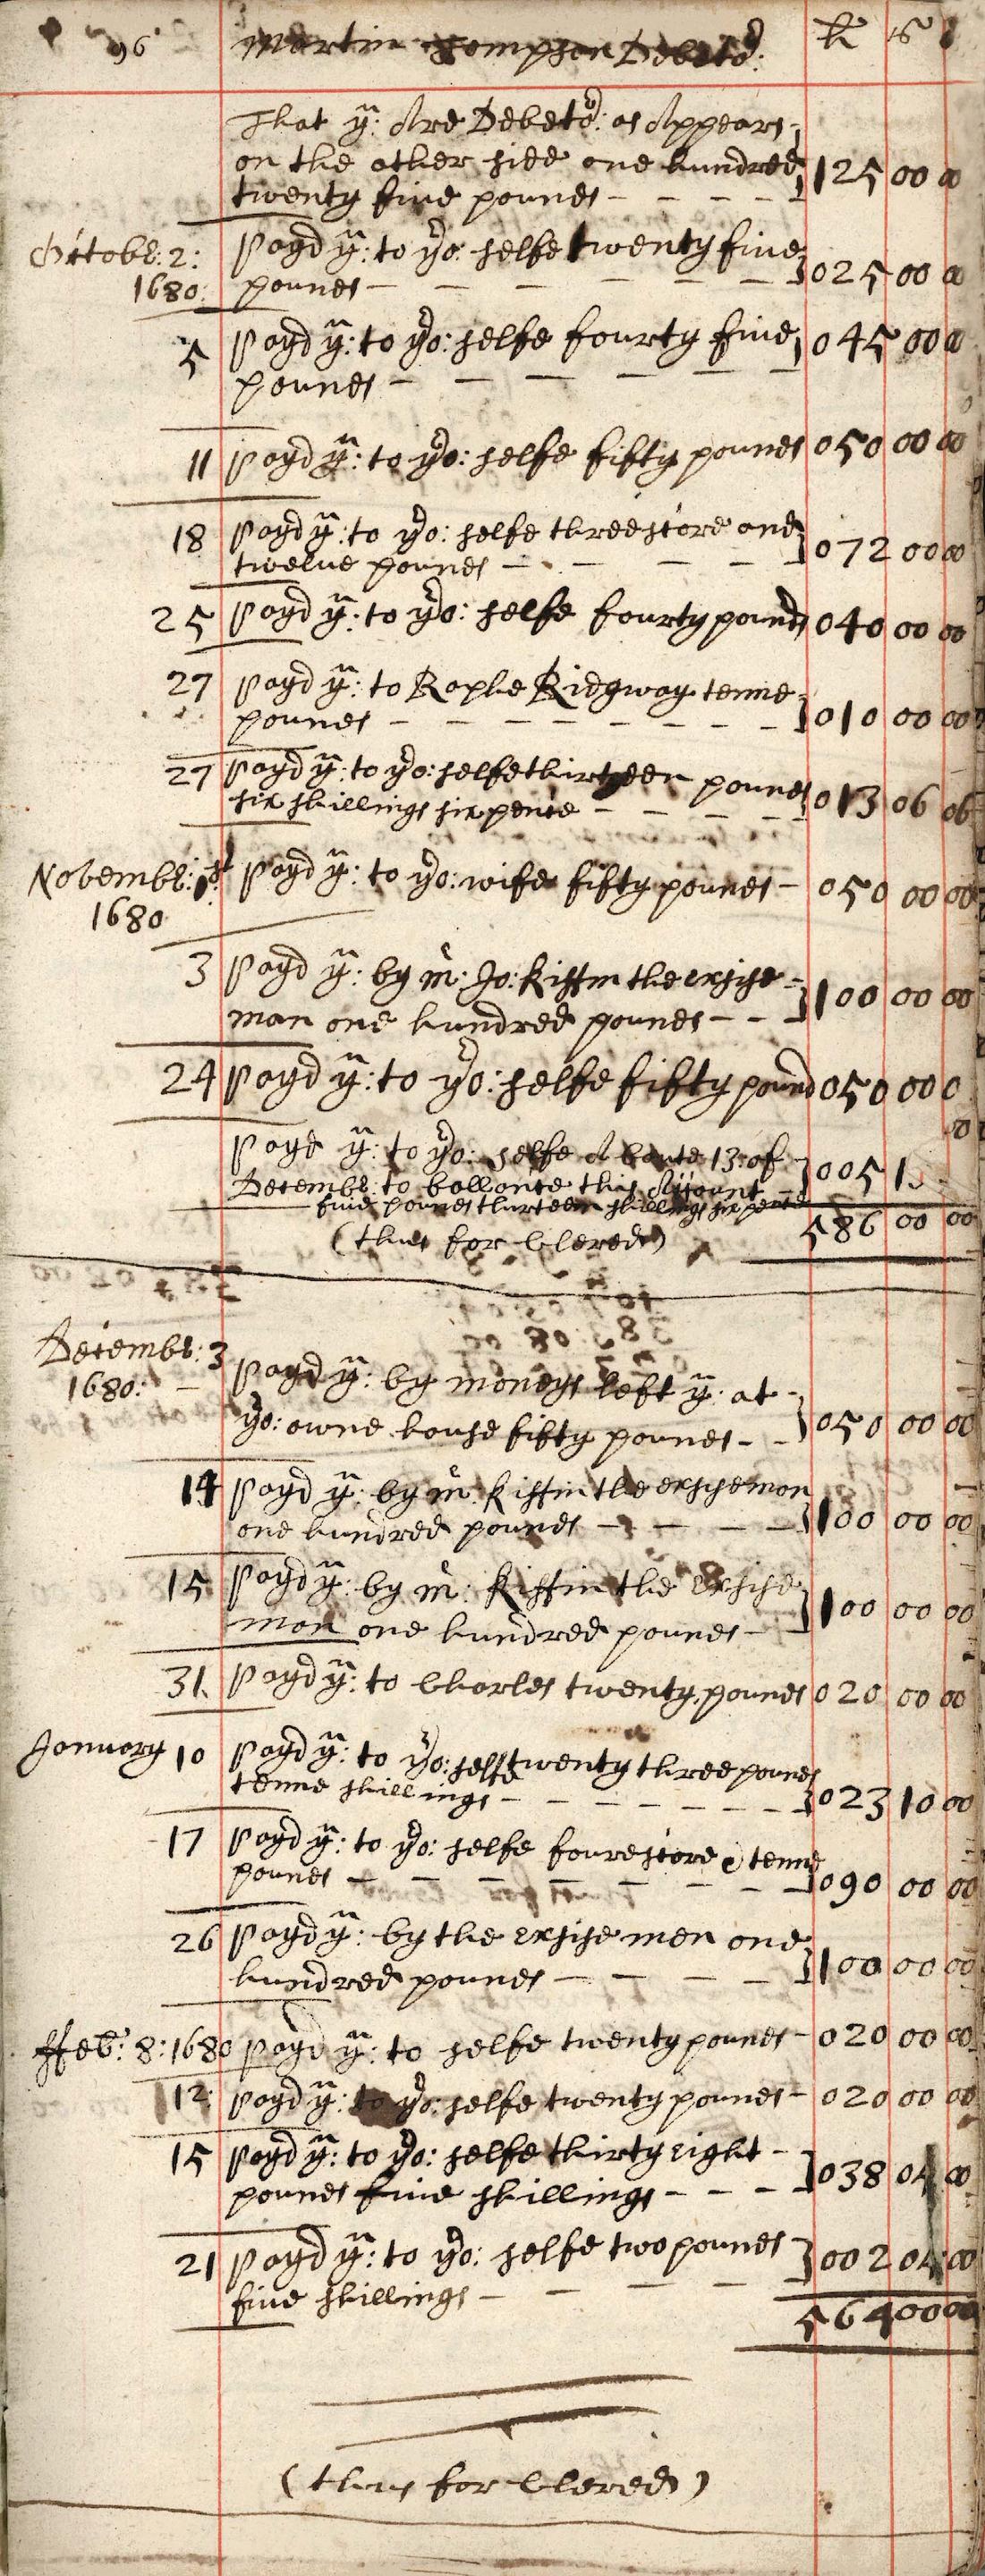 96 Martin Thompson Debeto^r: li s
That y^u: Are Debeto^r: as Appears
on the other side one hundred
twenty five pounds - - - - 125 00 00
Octobe^r: 2: payd y^u: to yo^r: selfe twenty five
1680: pounds - - - - - - 025 00 00
5 payd y^u: to yo^r: selfe fourty five 045 00 00
pounds - - - - -
11 payd y^u: to yo^r: selfe fifty pounds 050 00 00
18 payd y^u: to yo^r: selfe threescore and
twelve pounds - - - - 072 00 00
25 payd y^u: to yo^r: selfe fourty pounds 040 00 00
27 payd y^u: to Raphe Ridgway tenne
pounds - - - - - - - - 010 00 00
27 payd y^u: to yo^r: selfe thirteen pounds
six shillings six pence - - - - 013 06 06
Novembe^r: 1^st: payd y^u: to yo^r: wife fifty pounds - 050 00 00
1680
3 payd y^u: by m^r: Jo: Kiffin the exsise
man one hundred pounds - - 100 00 00
24 payd y^u: to yo^r: selfe fifty pound 050 00 0
0
payd y^u: to yo^r: selfe Aboute 13: of
Decembe^r: to ballance this Acount 005 13
five pounds thirteen shillings six pence
586 00 00
(thus for Clered)
Decembe^r: 3 payd y^u: by moneys left y^u: at
1680: - yo^r: owne house fifty pounds - - 050 00 00
14 payd y^u: by m^r: Kiffin the exsiseman
one hundred pounds - - - - - 100 00 00
15 payd y^u: by m^r: Kiffin the exsise
man one hundred pounds - 100 00 00
31. payd y^u: to Charles twenty pounds 020 00 00
January 10 payd y^u: to yo^r: selfe twenty three pounds
tenne shillings - - - - - - - - 023 10 00
17 payd y^u: to yo^r: selfe fourescore & tenne
pounds - - - - - - - - 090 00 00
26 payd y^u: by the exsise men one
hundred pounds - - - - 100 00 00
ffeb^r: 8: 1680 payd y^u: to selfe twenty pounds - 020 00 00
12 payd y^u: to yo^r: selfe twenty pounds - 020 00 00
15 payd y^u: to yo^r: selfe thirty eight -
pounds five shillings - - - 038 05 00
21 payd y^u: to yo^r: selfe two pounds
five shillings - - - - 002 05 00
564 00 00
(thus for Clered)